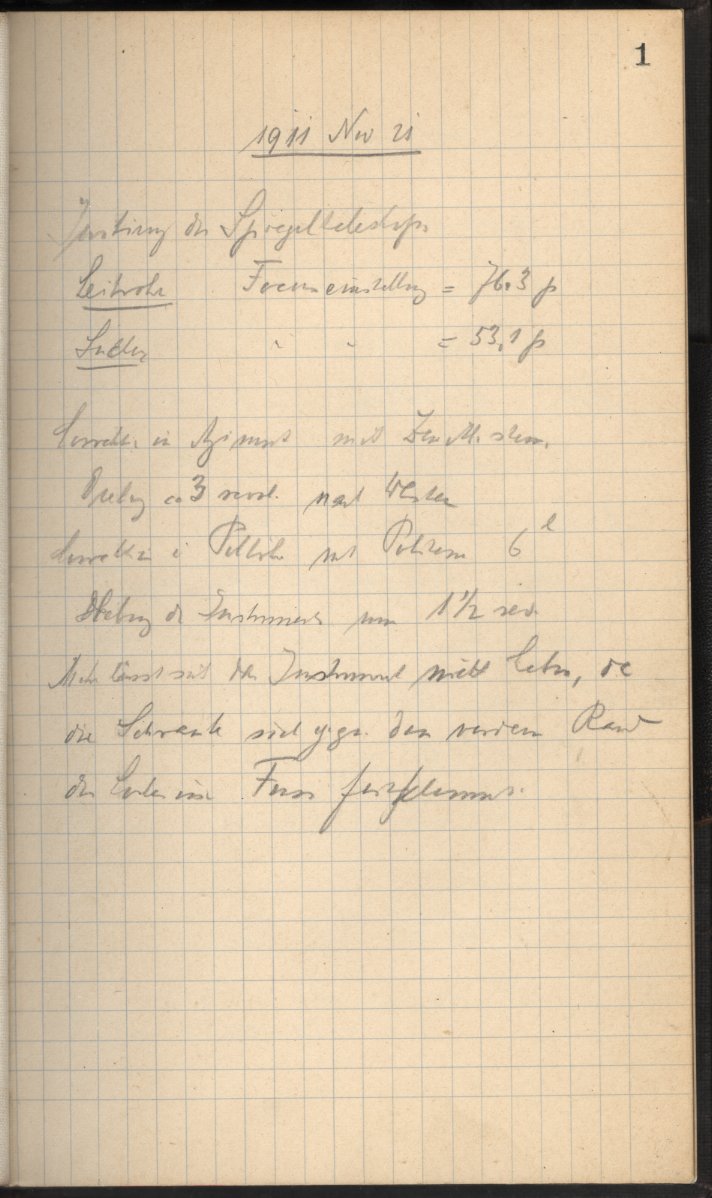 1
1911 Nov 21
Justirung des Spiegelteleskops
Leitrohr Focuseinstellung = 76.3 p
Sucher " " = 53,1 p
Correktion in Azimut mit
Drehung ca 3 revol. nach Westen
Correktion in Polhöhe mit Polstern 6
Hebung des Instruments um 1 1/2 rev.
Mehr lässt sich das Instrument nicht heben, da
die Schraube sich gegen den vorderen Rand
des im Fuss festklemmt.